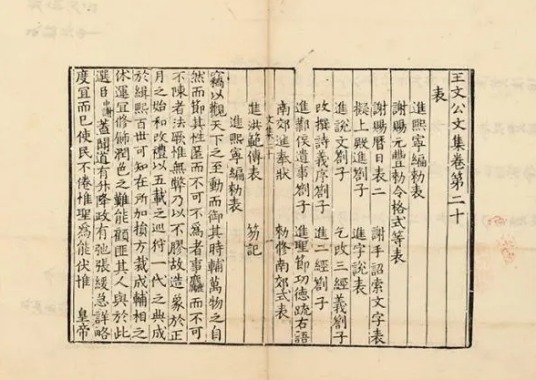 王文公文集卷第二十
表
進熙寧編勑表
謝賜元豐勑令格式等表
謝賜曆日表二 謝手詔索文字表
擬上殿進劄子 進字說表
進說文劄子 乞改三經義劄子
改撰詩義序劄子 進二經劄子
進鄴侯遺事劄子 進聖節功德疏右語
南郊進奉狀 勑修南郊式表
進洪範傳表 笏記
文集二十
進熙寧編勑表
竊以觀天下之至動而御其時輔萬物之自
然而節其性匿而不可不為者事麤而不可
不陳者法惟無弊乃以不膠故造象於正
月之始和改禮以五載之巡狩一代之典成
於緝熙百世可知在所加損方裁成輔相之
休運宜修飾潤色之難能顧匪其人與於此
選中謝蓋聞道有升降政有弛張緩急詳略
度宜而已使民不倦惟聖爲能伏惟 皇帝